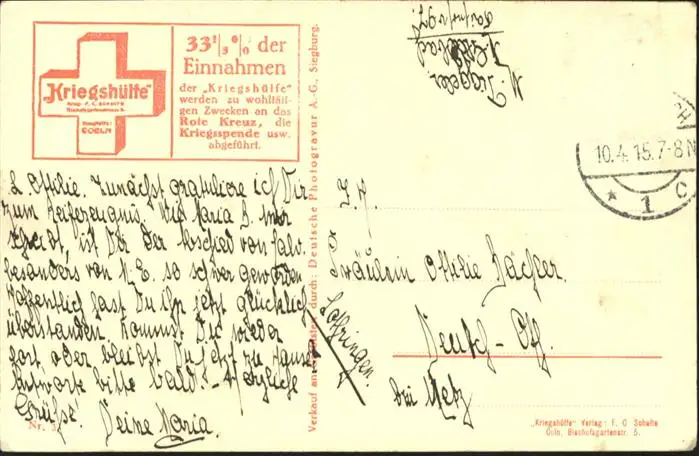 33 1/3 % der
Einnahmen
der „Kriegshülfe"
werden zu wohltäti-
gen Zwecken an das
Rote Kreuz, die
Kriegsspende usw.
abgeführt.
„Kriegshülfe"
COELN
L. Ottilie. Zunächst gratuliere ich Dir
zum Reifezeugnis. Wie Maria B. mir
schreibt, ist Dir der Abschied von
besonders von N. E. so schwer geworden
Hoffentlich hast Du ihn jetzt glücklich
überstanden. Kommst Du wieder
dort oder bleibst Du jetzt zu Hause
Antworte bitte bald! Herzliche
Grüße! Deine Maria.
Nr.
Verkauf durch: Deutsche Photogravur A.-G., Siegburg.
10.4.15.7-8N
* 1 C
Fräulein Ottilie
bei Metz
Lothringen.
„Kriegshülfe" Verlag: F. C Schafte
Cöln, Bischofsgartenstr. 5.